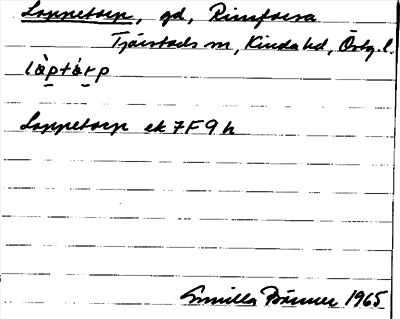 Loppetorp, gd, Rimforsa
Tjärstads sn, Kinda hd, Östg. l.
lòptárp
Loppetorp ek 7F9h
Gunilla Bränner 1965